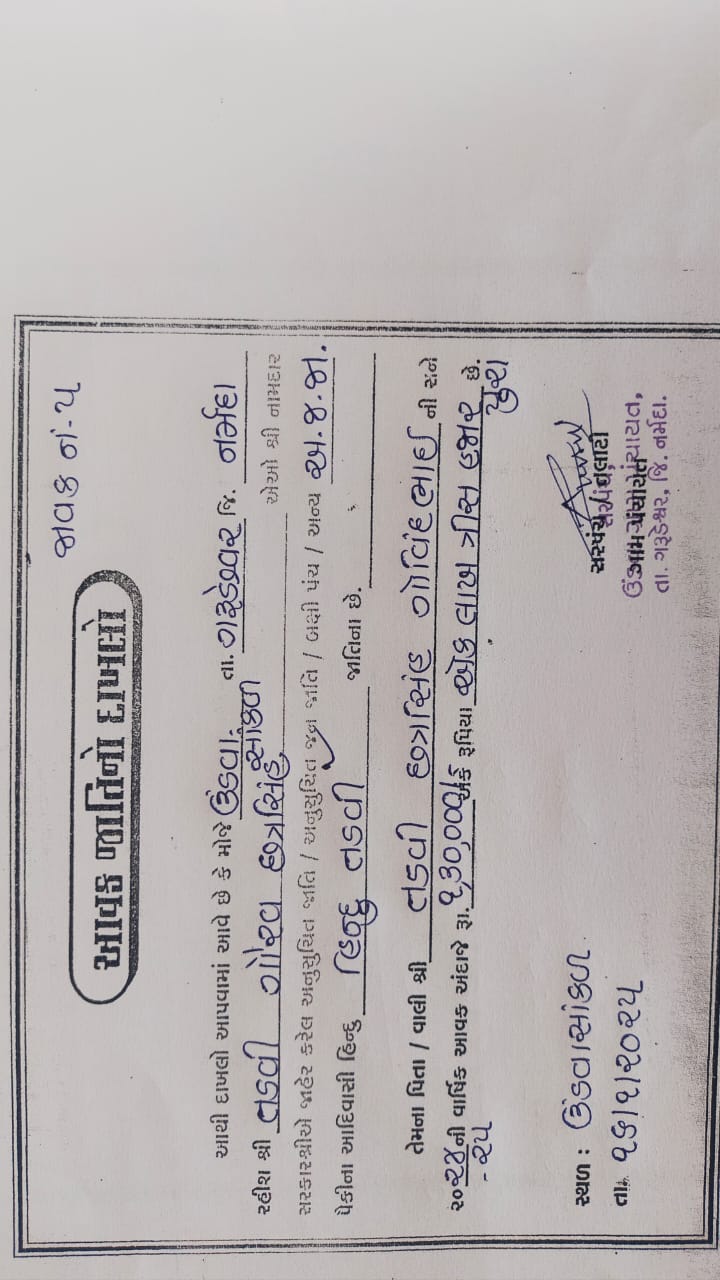 જાવક નં-૨૫
આવક જાતિનો દાખલો
આથી દાખલો આપવામાં આવે છે કે મોજે ઉંડવા. સાંકળ તા. ગરૂડેશ્વર જિ. નર્મદા
રહીશ શ્રી તડવી ગૌરવ છત્રસિંહ એઓ શ્રી નામદાર
સરકારશ્રીએ જાહેર કરેલ અનુસુચિત જાતિ / અનુસુચિત જન જાતિ / બક્ષી પંચ / અન્ય અ.જ.જા.
પૈકીના આદિવાસી હિન્દુ હિન્દુ તડવી જાતિના છે.
તેમના પિતા / વાલી શ્રી તડવી છત્રસિંહ ગોવિંદભાઈ ની સને
૨૦૨૪-૨૫ ની વાર્ષિક આવક અંદાજે રૂા. ૧,૩૦,૦૦૦/- અંકે રૂપિયા એક લાખ ત્રીસ હજાર પુરા છે.
સ્થળ : ઉંડવા સાંકળ
સરપંચ / તલાટી
સરપંચ,
તા. ૧૬/૫/૨૦૨૫
ગ્રામ પંચાયત
તા. ગરૂડેશ્વર, જિ. નર્મદા.